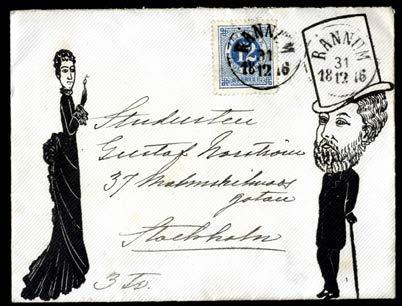 RÄNNUM
31
1812 16
RÄNNUM
31
1812 16
12
Studenten
Gustaf Norström
37 Malmskilnads
gatan
Stockholm
3 Tr.